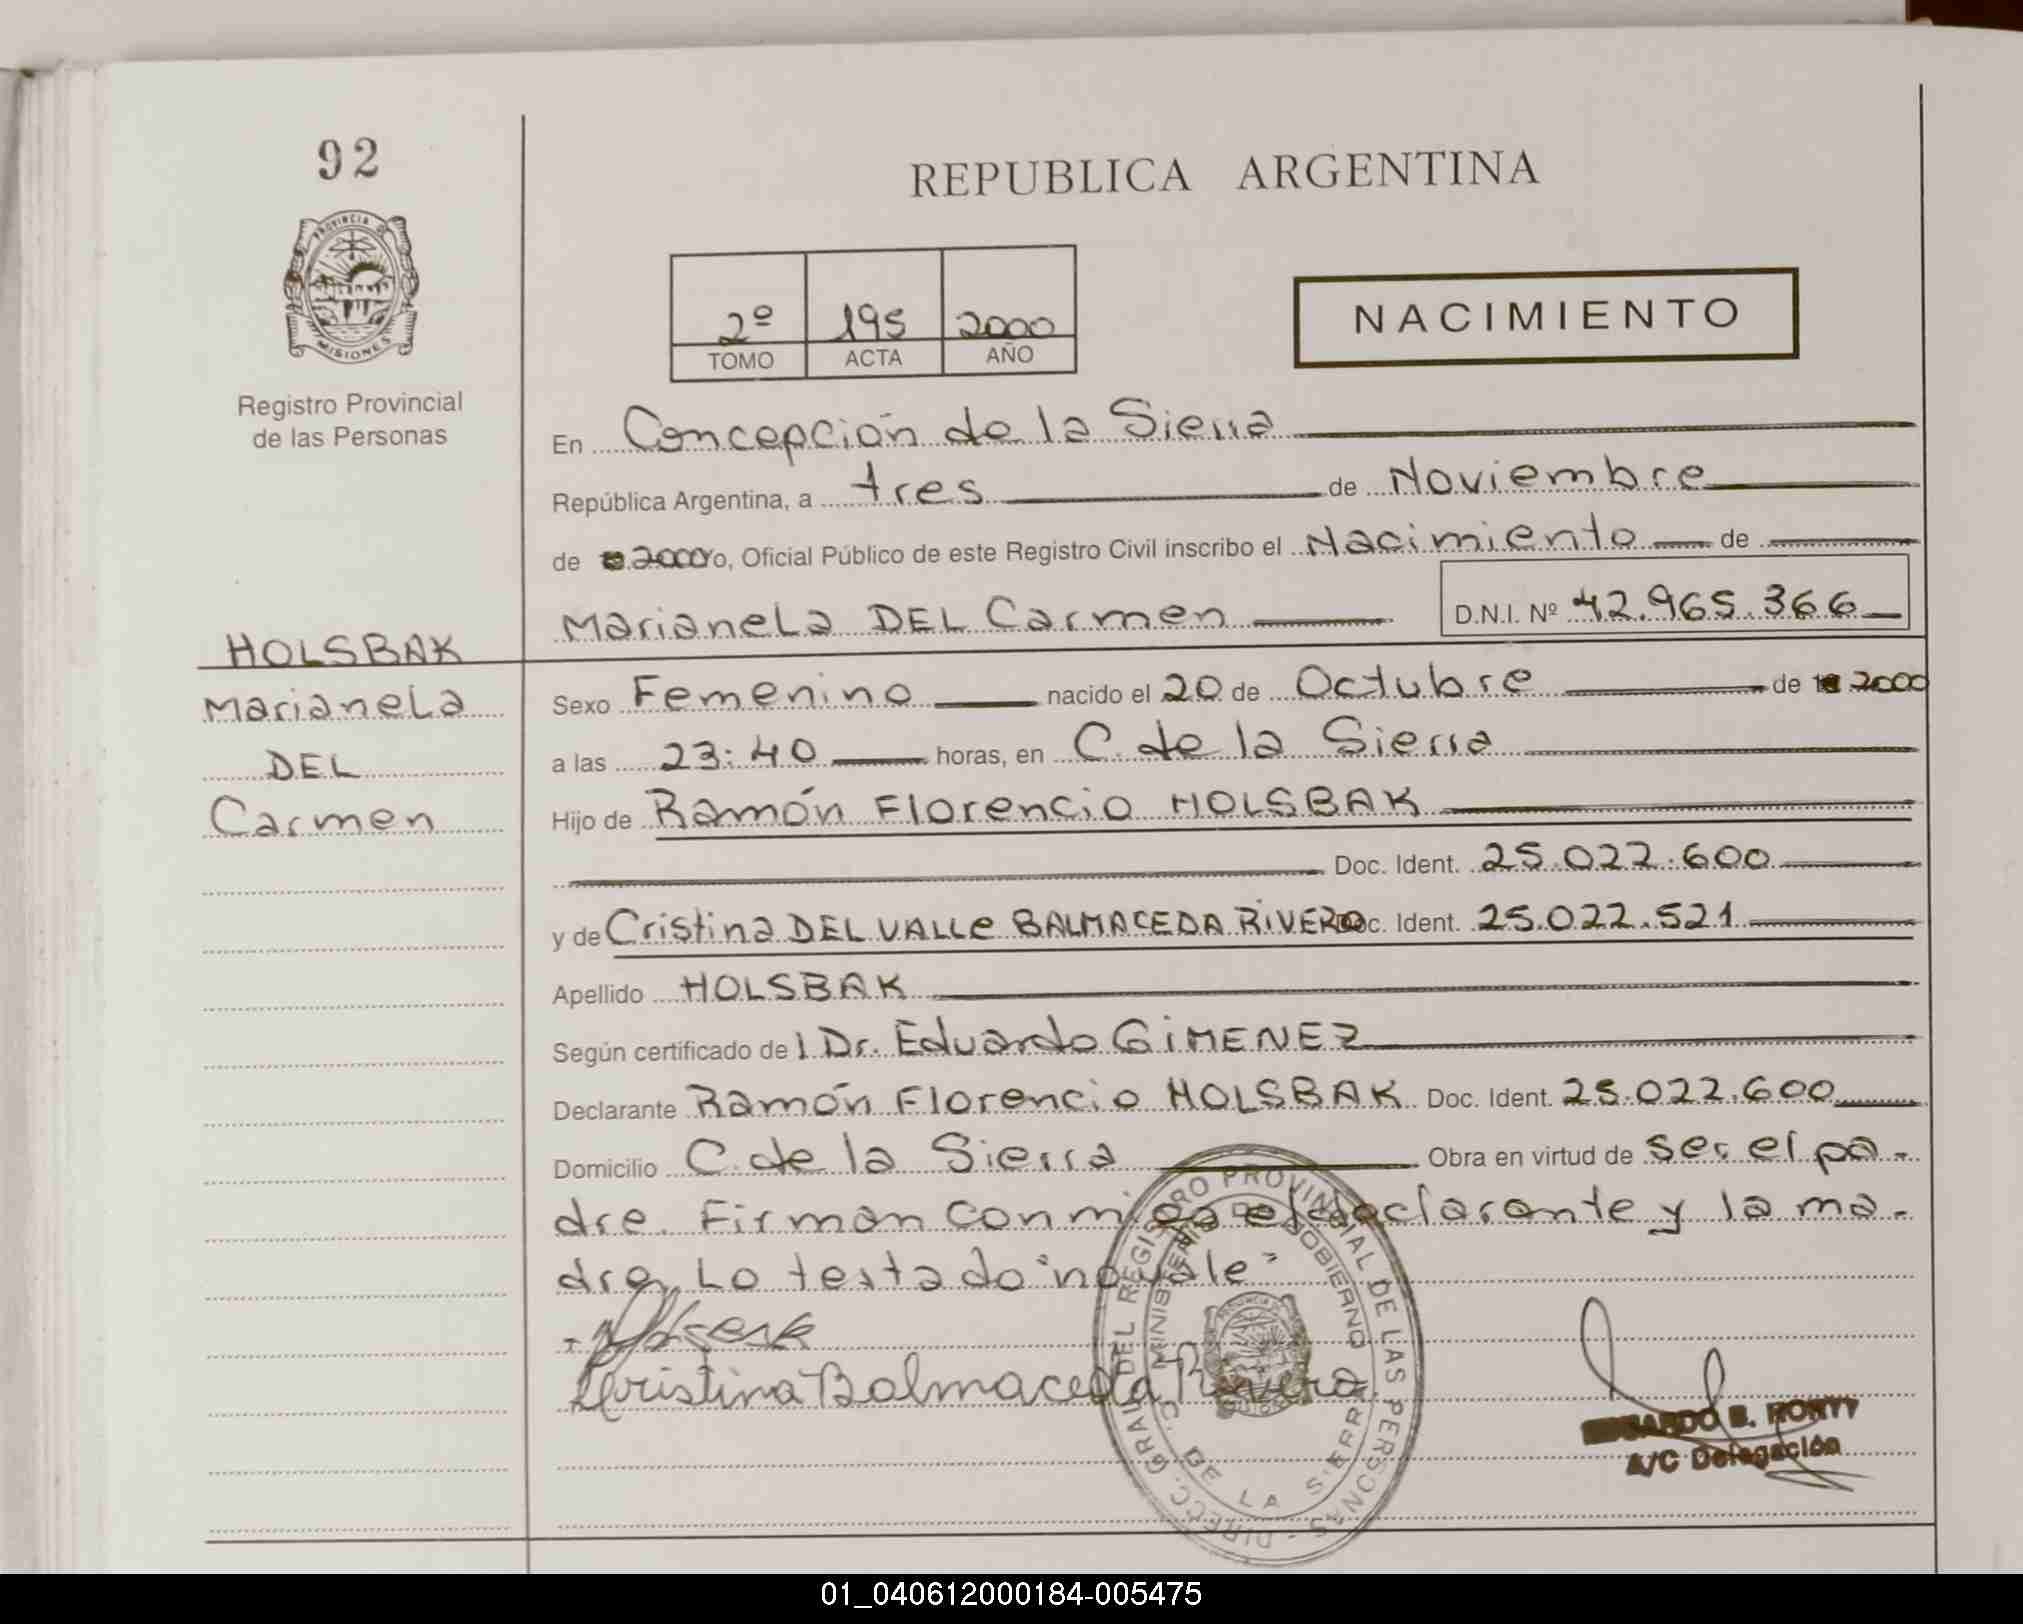 92
REPUBLICA ARGENTINA
PROVINCIA DE
MISIONES
Registro Provincial
de las Personas
2º 195 2000
TOMO ACTA AÑO
NACIMIENTO
En Concepción de la Sierra
República Argentina, a tres de Noviembre
de 2000 yo, Oficial Público de este Registro Civil inscribo el Nacimiento de
Marianela DEL Carmen D.N.I. Nº 42.965.366
HOLSBAK
Marianela
DEL
Carmen
Sexo Femenino nacido el 20 de Octubre de 1 2000
a las 23:40 horas, en C. de la Sierra
Hijo de Ramón Florencio HOLSBAK
Doc. Ident. 25.022.600
y de Cristina DEL VALLE BALMACEDA RIVERO Doc. Ident. 25.022.521
Apellido HOLSBAK
Según certificado del Dr. Eduardo GIMENEZ
Declarante Ramón Florencio HOLSBAK Doc. Ident. 25.022.600
Domicilio C. de la Sierra Obra en virtud de ser el pa-
dre. Firman conmigo el declarante y la ma-
dre. Lo testado "no vale"
Cristina Balmaceda Rivero
DIRECC. GRAL. DEL REGISTRO PROVINCIAL DE LAS PERSONAS -
MINISTERIO DE GOBIERNO
C. DE LA SIERRA
A/C Delegación
01_040612000184-005475